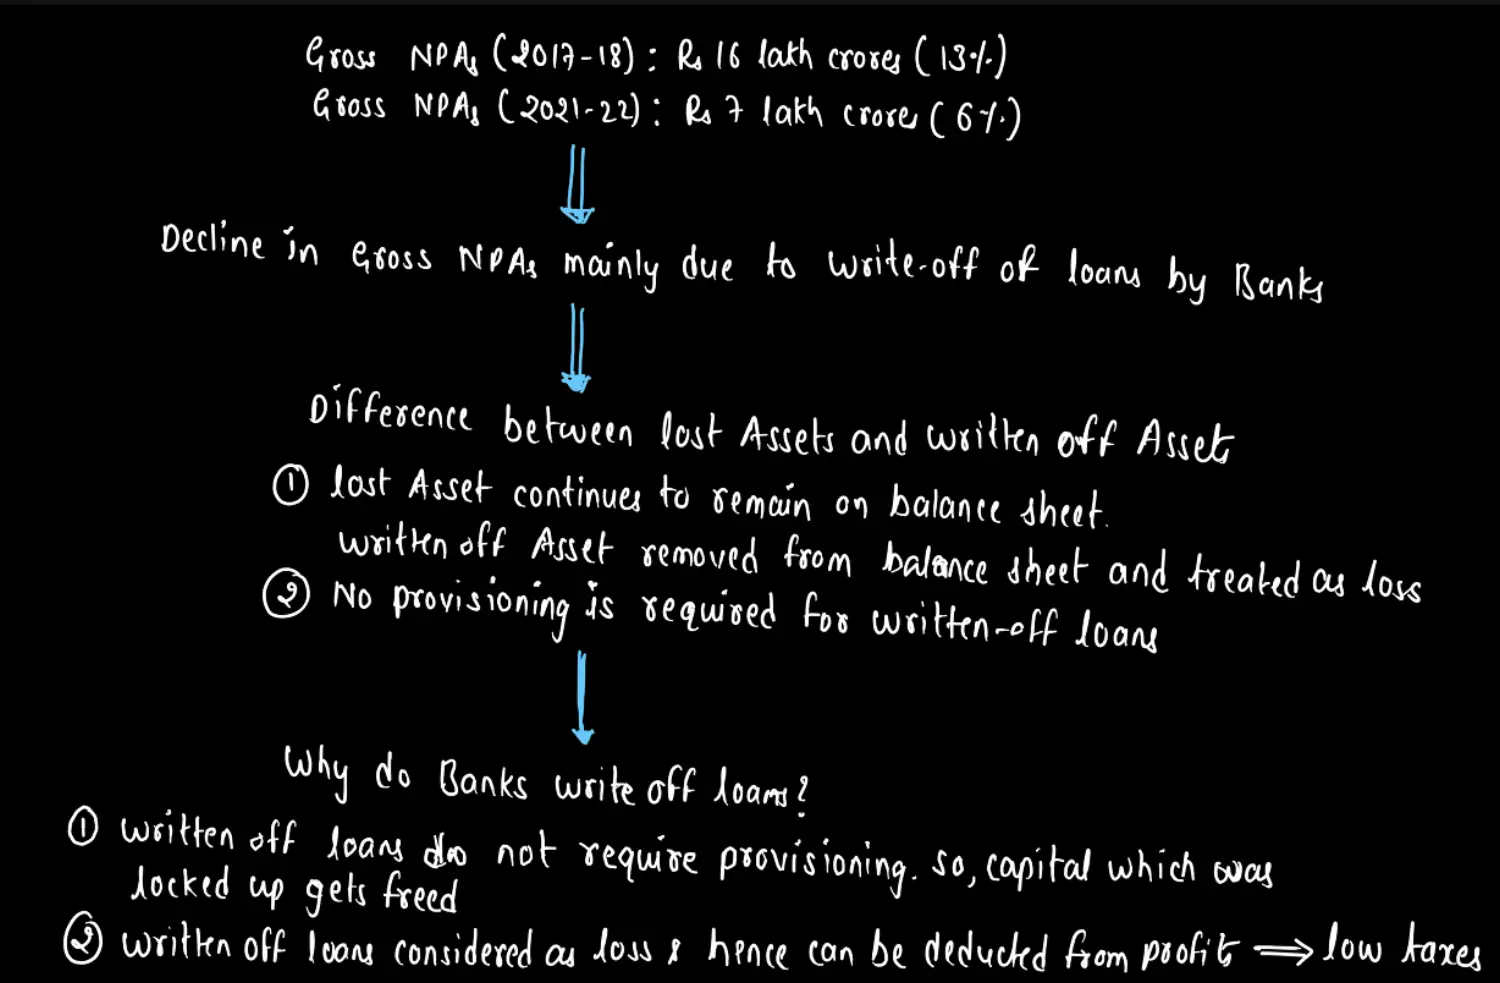 Gross NPAs (2017-18): Rs 16 lakh crores (13%)
Gross NPAs (2021-22): Rs 7 lakh crores (6%)
Decline in Gross NPAs mainly due to write-off of loans by Banks
Difference between lost Assets and written off Assets
① lost Asset continues to remain on balance sheet.
written off Asset removed from balance sheet and treated as loss
② No provisioning is required for written-off loans
Why do Banks write off loans?
① written off loans do not require provisioning. so, capital which was
locked up gets freed
② written off loans considered as loss & hence can be deducted from profit ⟹ low taxes